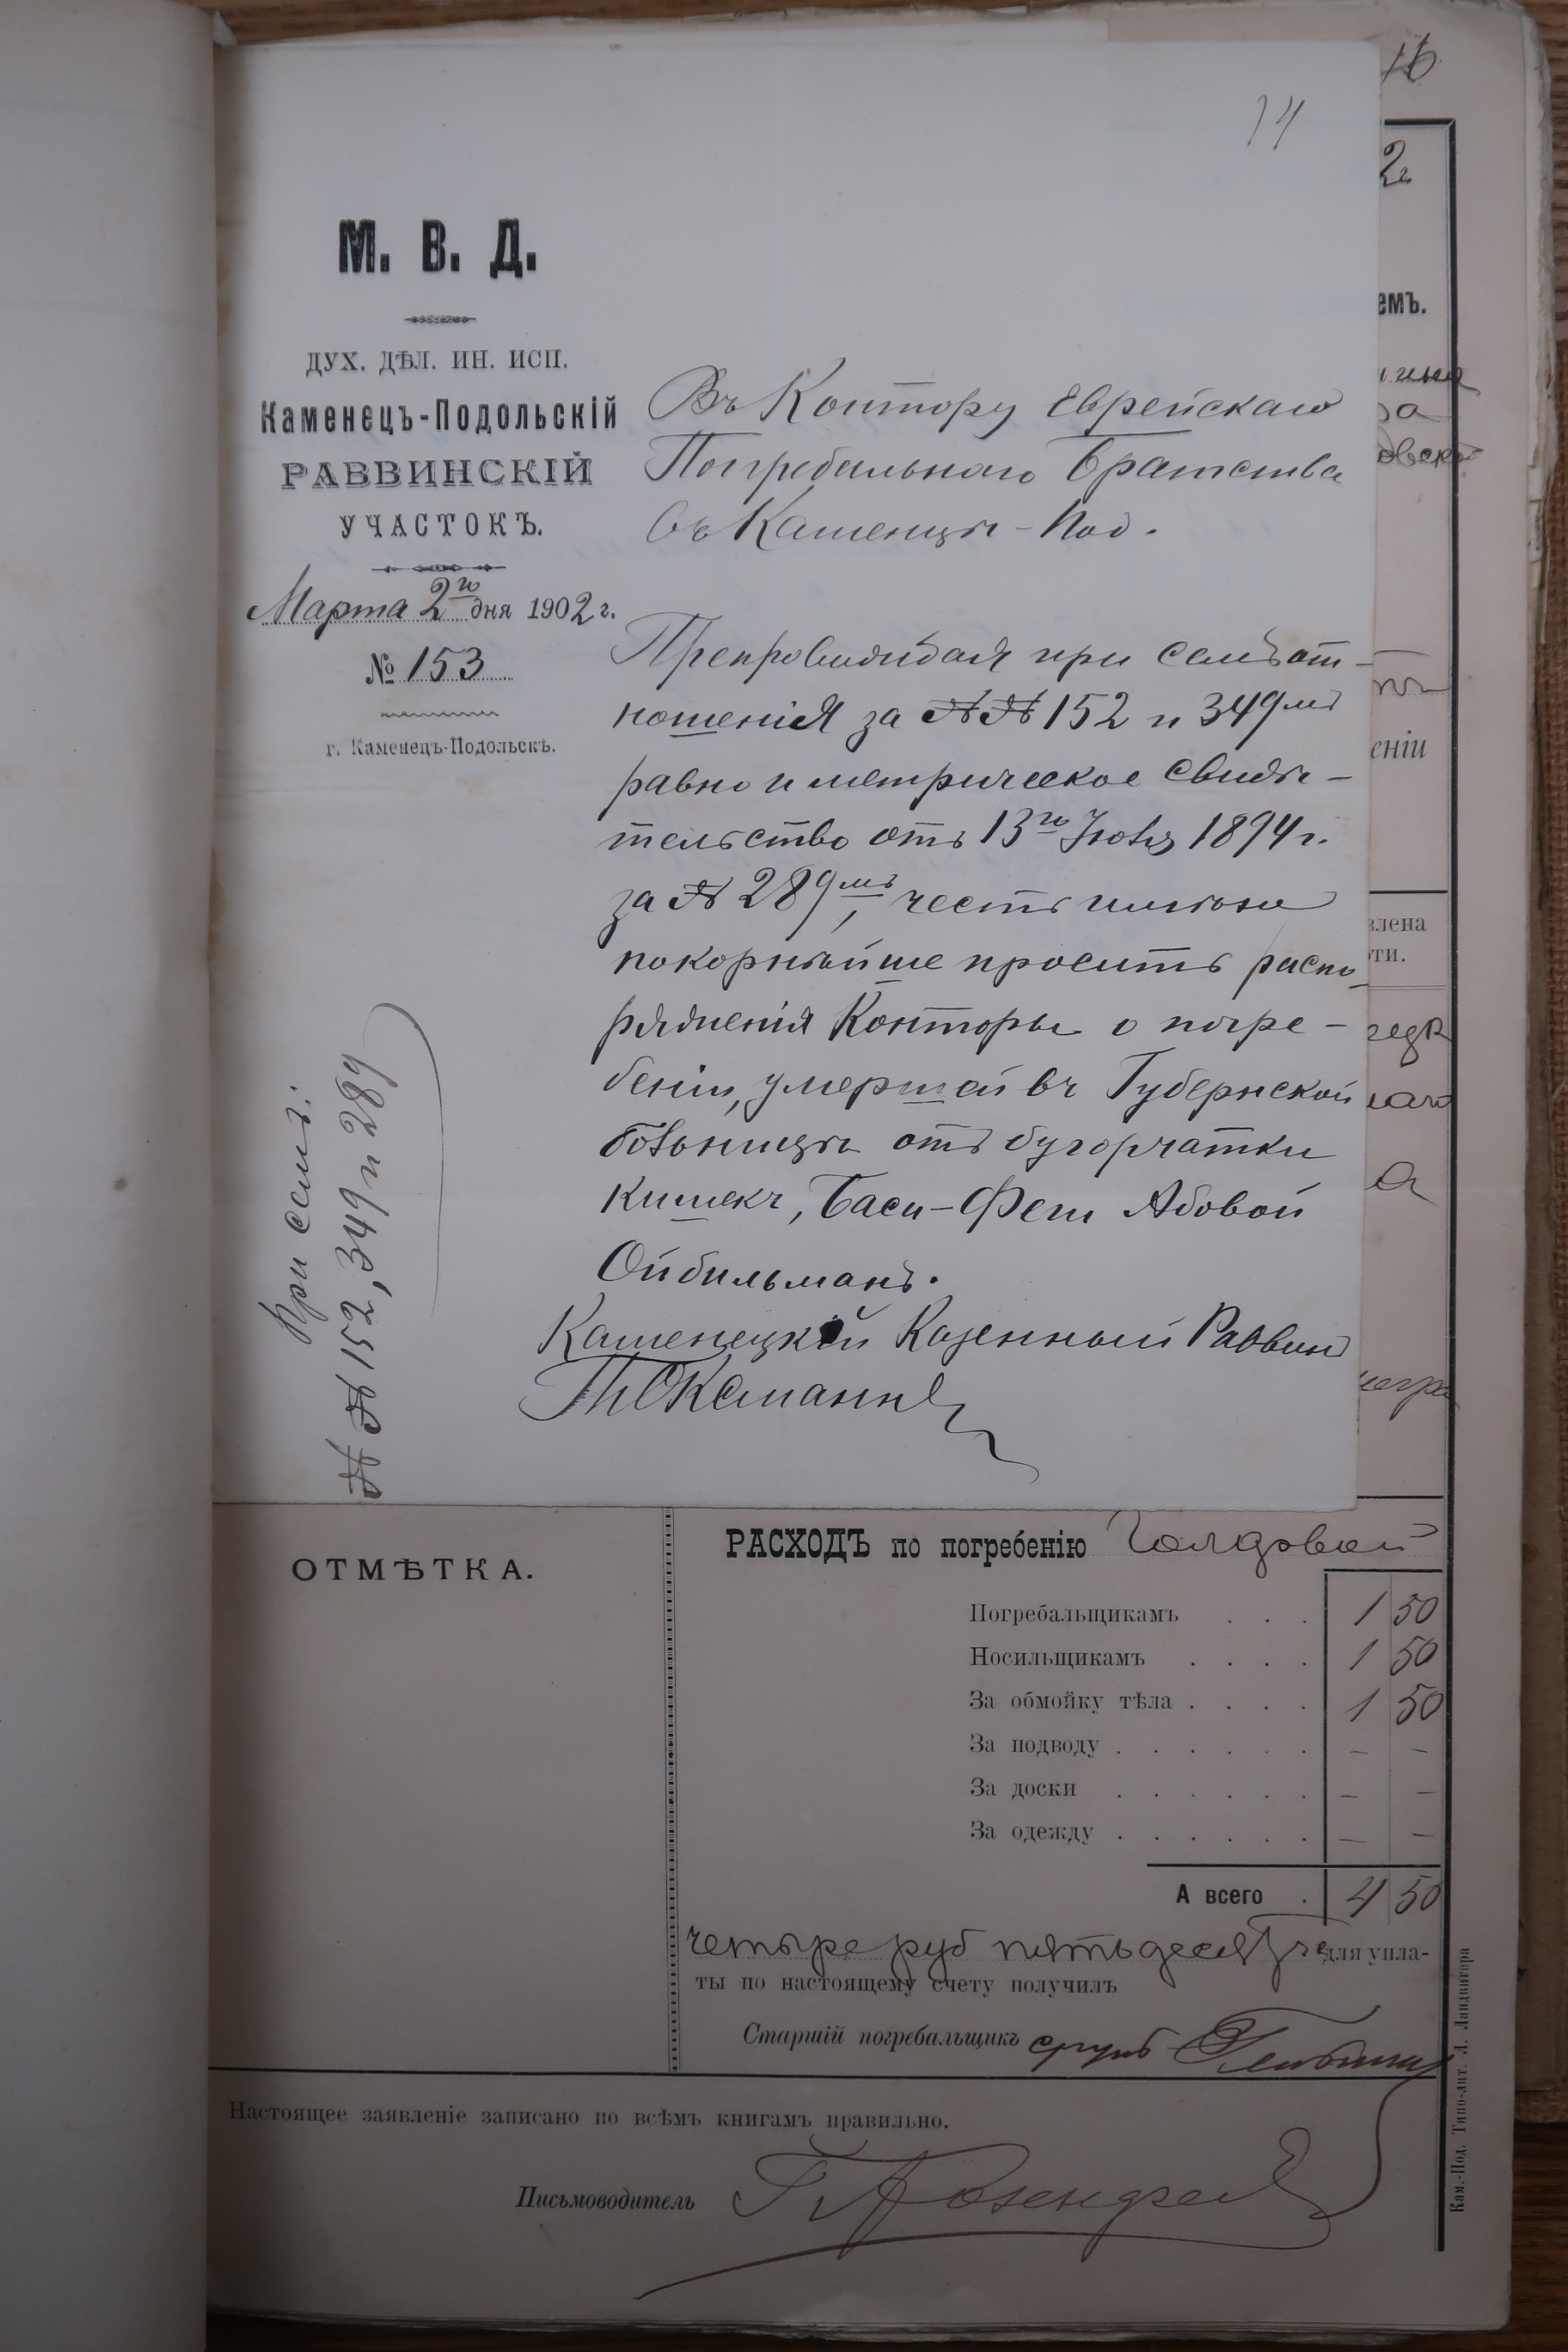 16
14
2г.
М. В. Д.
ДУХ. ДѢЛ. ИН. ИСП.
Каменецъ-Подольскій
РАВВИНСКІЙ
УЧАСТОКЪ.
Марта 2го дня 1902 г.
№ 153
г. Каменецъ-Подольскъ.
При семъ:
№№ 152, 349 и 289
Въ Контору Еврейскаго
Погребальнаго Братства
въ Каменцѣ-Под.
Препровождая при семъ от-
ношенія за №№ 152 и 349мъ
равно и метрическое свидѣ-
тельство отъ 13го Іюля 1894 г.
за № 289мъ, честь имѣю
покорнѣйше просить распо-
ряженія Конторы о погре-
беніи, умершей въ Губернской
больницѣ отъ бугорчатки
кишекъ, Баси-Феги Абовой
Ойбильманъ.
Каменецкій Казенный Раввинъ
емъ.
еніи
влена
ти.
ОТМѢТКА.
РАСХОДЪ по погребенію Голдовой
Погребальщикамъ . . . 1 50
Носильщикамъ . . . . 1 50
За обмойку тѣла . . . . 1 50
За подводу . . . . . . – –
За доски . . . . . . – –
За одежду . . . . . . – –
А всего . 4 50
четыре руб пятьдесят для упла-
ты по настоящему счету получилъ
Старшій погребальщикъ
Настоящее заявленіе записано по всѣмъ книгамъ правильно.
Письмоводитель
Кам.-Под. Типо-лит. Л. Ландвигера